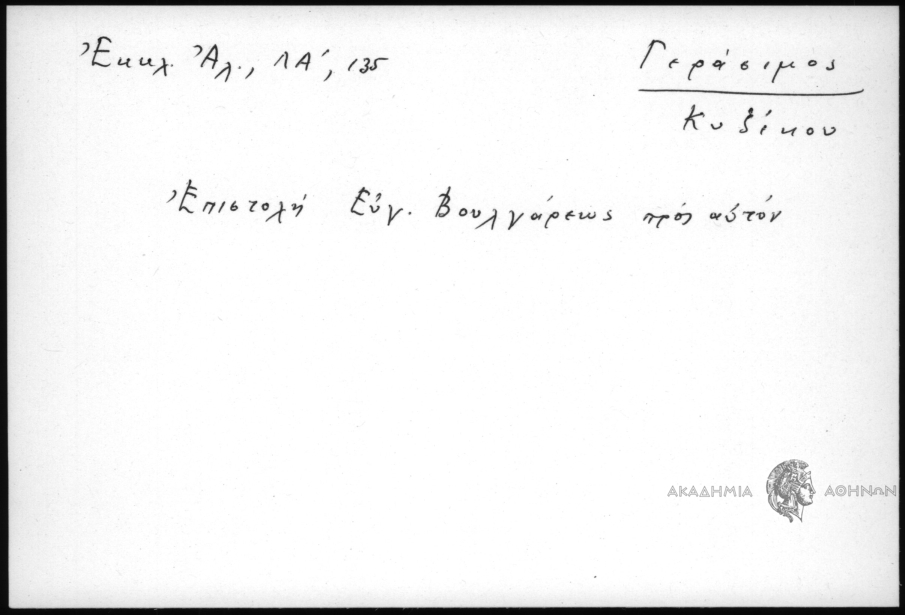 Ἐκκλ. Ἀλ., ΛΑ', 135
Γεράσιμος
Κυζίκου
Ἐπιστολή Εὐγ. Βουλγάρεως πρός αὐτόν
ΑΚΑΔΗΜΙΑ ΑΘΗΝΩΝ